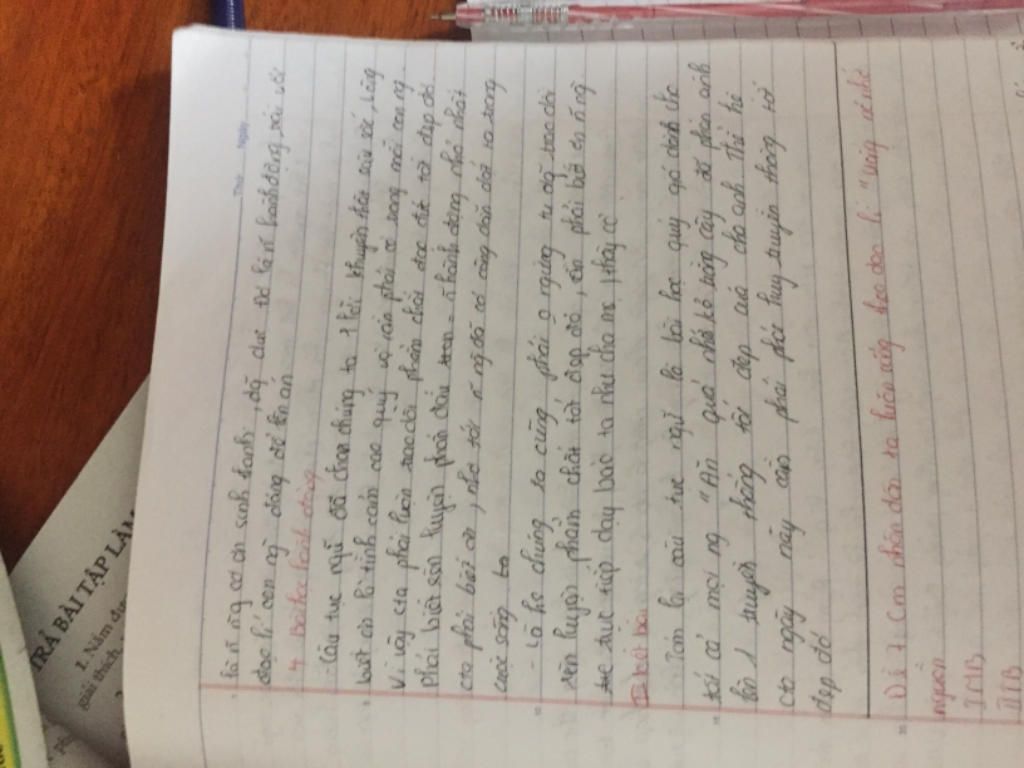 Thứ Ngày
là ~ ng có ơn sinh thành, dg dục ta là ~ hành động, trái với
đạo lí con ng đáng để lên án
4. Bài học hành động
Câu tục ngữ đã cho chúng ta 1 lời khuyên thật sâu sắc, lòng
biết ơn là tình cảm cao quý và cần phải có trong mỗi con ng
Vì vậy cta phải luôn trao dồi phẩm chất đạo đức tốt đẹp đó
Phải biết rèn luyện phấn đấu hành động nhỏ nhất
cta phải biết ơn, nhớ tới ~ ng đã có công chăm sóc ta trong
cuộc sống ta
- Là hs chúng ta cũng phải ngừng tu dg trao dồi
rèn luyện phẩm chất tốt đẹp đó, cần phải biết ơn ~ ng
trực tiếp dạy bảo ta như cha mẹ, thầy cô
III Kết bài
Tóm lại câu tục ngữ là bài học quý giá dành cho
tất cả mọi ng "Ăn quả nhớ kẻ trồng cây" đã phản ánh
lên 1 truyền thống tốt đẹp của cha anh Thế hệ
cta ngày nay cần phải phát huy truyền thống tốt
đẹp đó
Đề 7: Cm nhân dân ta luôn sống theo đạo lí "Uống nước nhớ
nguồn
I MB
II TB
TRẢ BÀI TẬP LÀM
1. Nắm đư
giải thích,